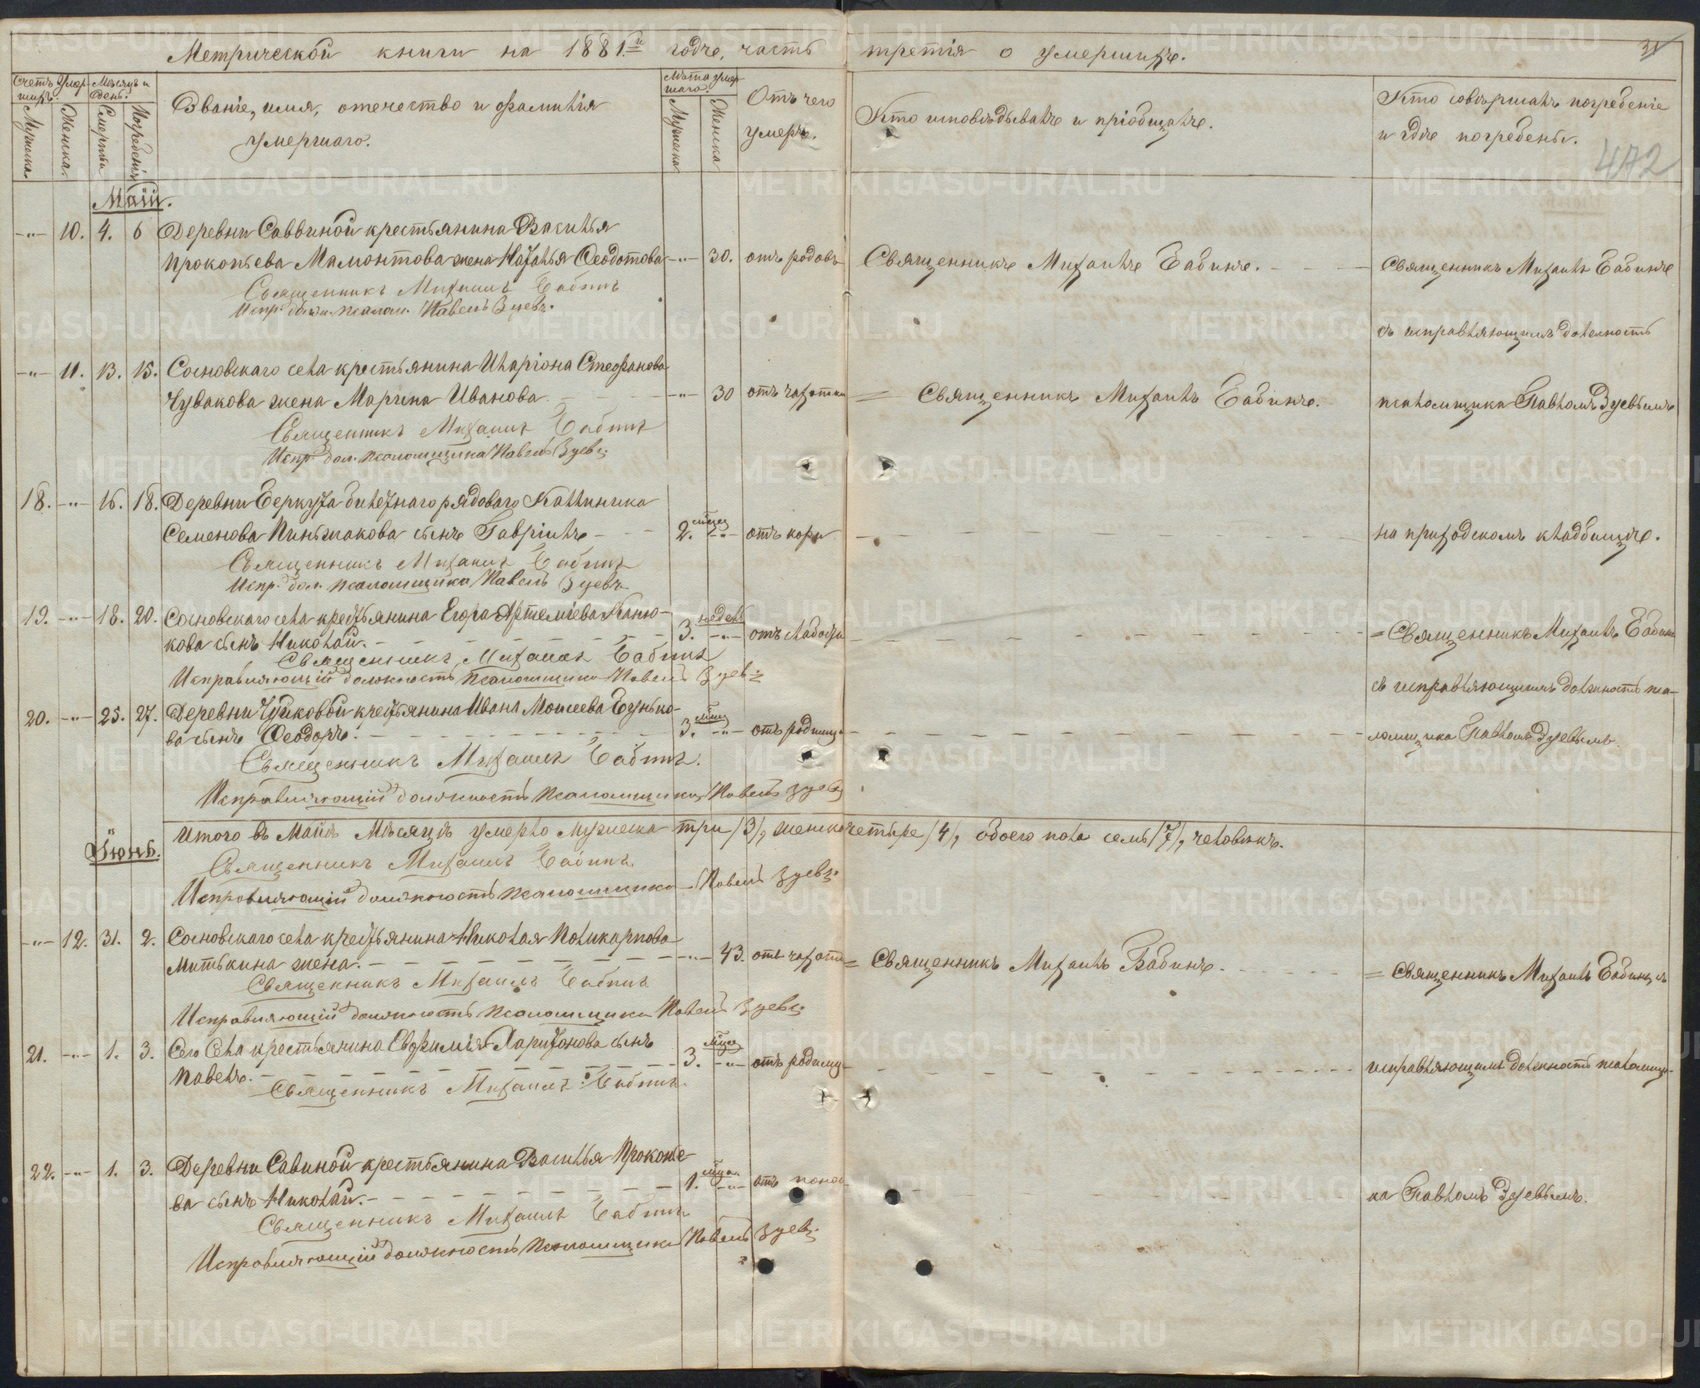 Метрической книги на 1881й годъ, часть третія о умершихъ.
31
Счетъ умершихъ.
Мужска.
Женска.
Мѣсяцъ и день.
Смерти
Погребенія
Званіе, имя, отечество и фамилія
умершаго.
Лѣта умершаго.
Мужска
Женска
Отъ чего
умеръ.
Кто исповѣдывалъ и пріобщалъ.
Кто совершалъ погребеніе
и гдѣ погребены.
472
Маій.
-"- 10. 4. 6 Деревни Саввиной крестьянина Василья
Прокопьева Мамонтова жена Наталья Ѳеодотова -"- 30. отъ родовъ Священникъ Михаилъ Бабинъ. Священникъ Михаилъ Бабинъ
Священникъ Михаилъ Бабинъ
Испр. долж. псалом. Павелъ Зуевъ.
съ исправляющимъ должность
-"- 11. 13. 15. Сосновскаго села крестьянина Иларіона Стефанова
Чувакова жена Марина Иванова. -"- 30 отъ чахотки = Священникъ Михаилъ Бабинъ. псаломщика Павломъ Зуевымъ
Священникъ Михаилъ Бабинъ
Испр. дол. псаломщика Павелъ Зуевъ
18. -"- 16. 18. Деревни Беркута билетнаго рядоваго Каллиника
Семенова сынъ Гавріилъ 2. мѣсяц -"- отъ кори на приходскомъ кладбищѣ.
Священникъ Михаилъ Бабинъ
Испр. дол. псаломщика Павелъ Зуевъ
19. -"- 18. 20. Сосновскаго села крестьянина Егора Артеміева
кова сынъ Николай. 3. недѣль -"- отъ слабости = Священникъ Михаилъ Бабинъ
Священникъ Михаилъ Бабинъ
Исправляющій должность псаломщика Павелъ Зуевъ
съ исправляющимъ должность пса-
20. -"- 25. 27. Деревни Чуйковой крестьянина Ивана Моисеева
ва сынъ Ѳеодоръ. 3. мѣс -"- отъ родимца ломщика Павломъ Зуевымъ.
Священникъ Михаилъ Бабинъ.
Исправляющій должность псаломщика Павелъ Зуевъ
Итого въ Маіѣ мѣсяцѣ умерло мужеска три /3/, женска четыре /4/, обоего пола семь /7/, человѣкъ.
Іюнь.
Священникъ Михаилъ Бабинъ
Исправляющій должность псаломщика Павелъ Зуевъ
-"- 12. 31. 2. Сосновскаго села крестьянина Николая Поликарпова
Митькина жена. -"- 43. отъ чахотки = Священникъ Михаилъ Бабинъ. = Священникъ Михаилъ Бабинъ съ
Священникъ Михаилъ Бабинъ
Исправляющій должность псаломщика Павелъ Зуевъ
21. -"- 1. 3. Сего села крестьянина Евфимія Харитонова сынъ
Павелъ. 3. мѣся -"- отъ родимц исправляющимъ должность псаломщи-
Священникъ Михаилъ Бабинъ.
22. -"- 1. 3. Деревни Савиной крестьянина Василья Прокопье-
ва сынъ Николай. 1. мѣсяц -"- отъ понос ка Павломъ Зуевымъ.
Священникъ Михаилъ Бабинъ
Исправляющій должность псаломщика Павелъ Зуевъ
METRIKI.GASO-URAL.RU